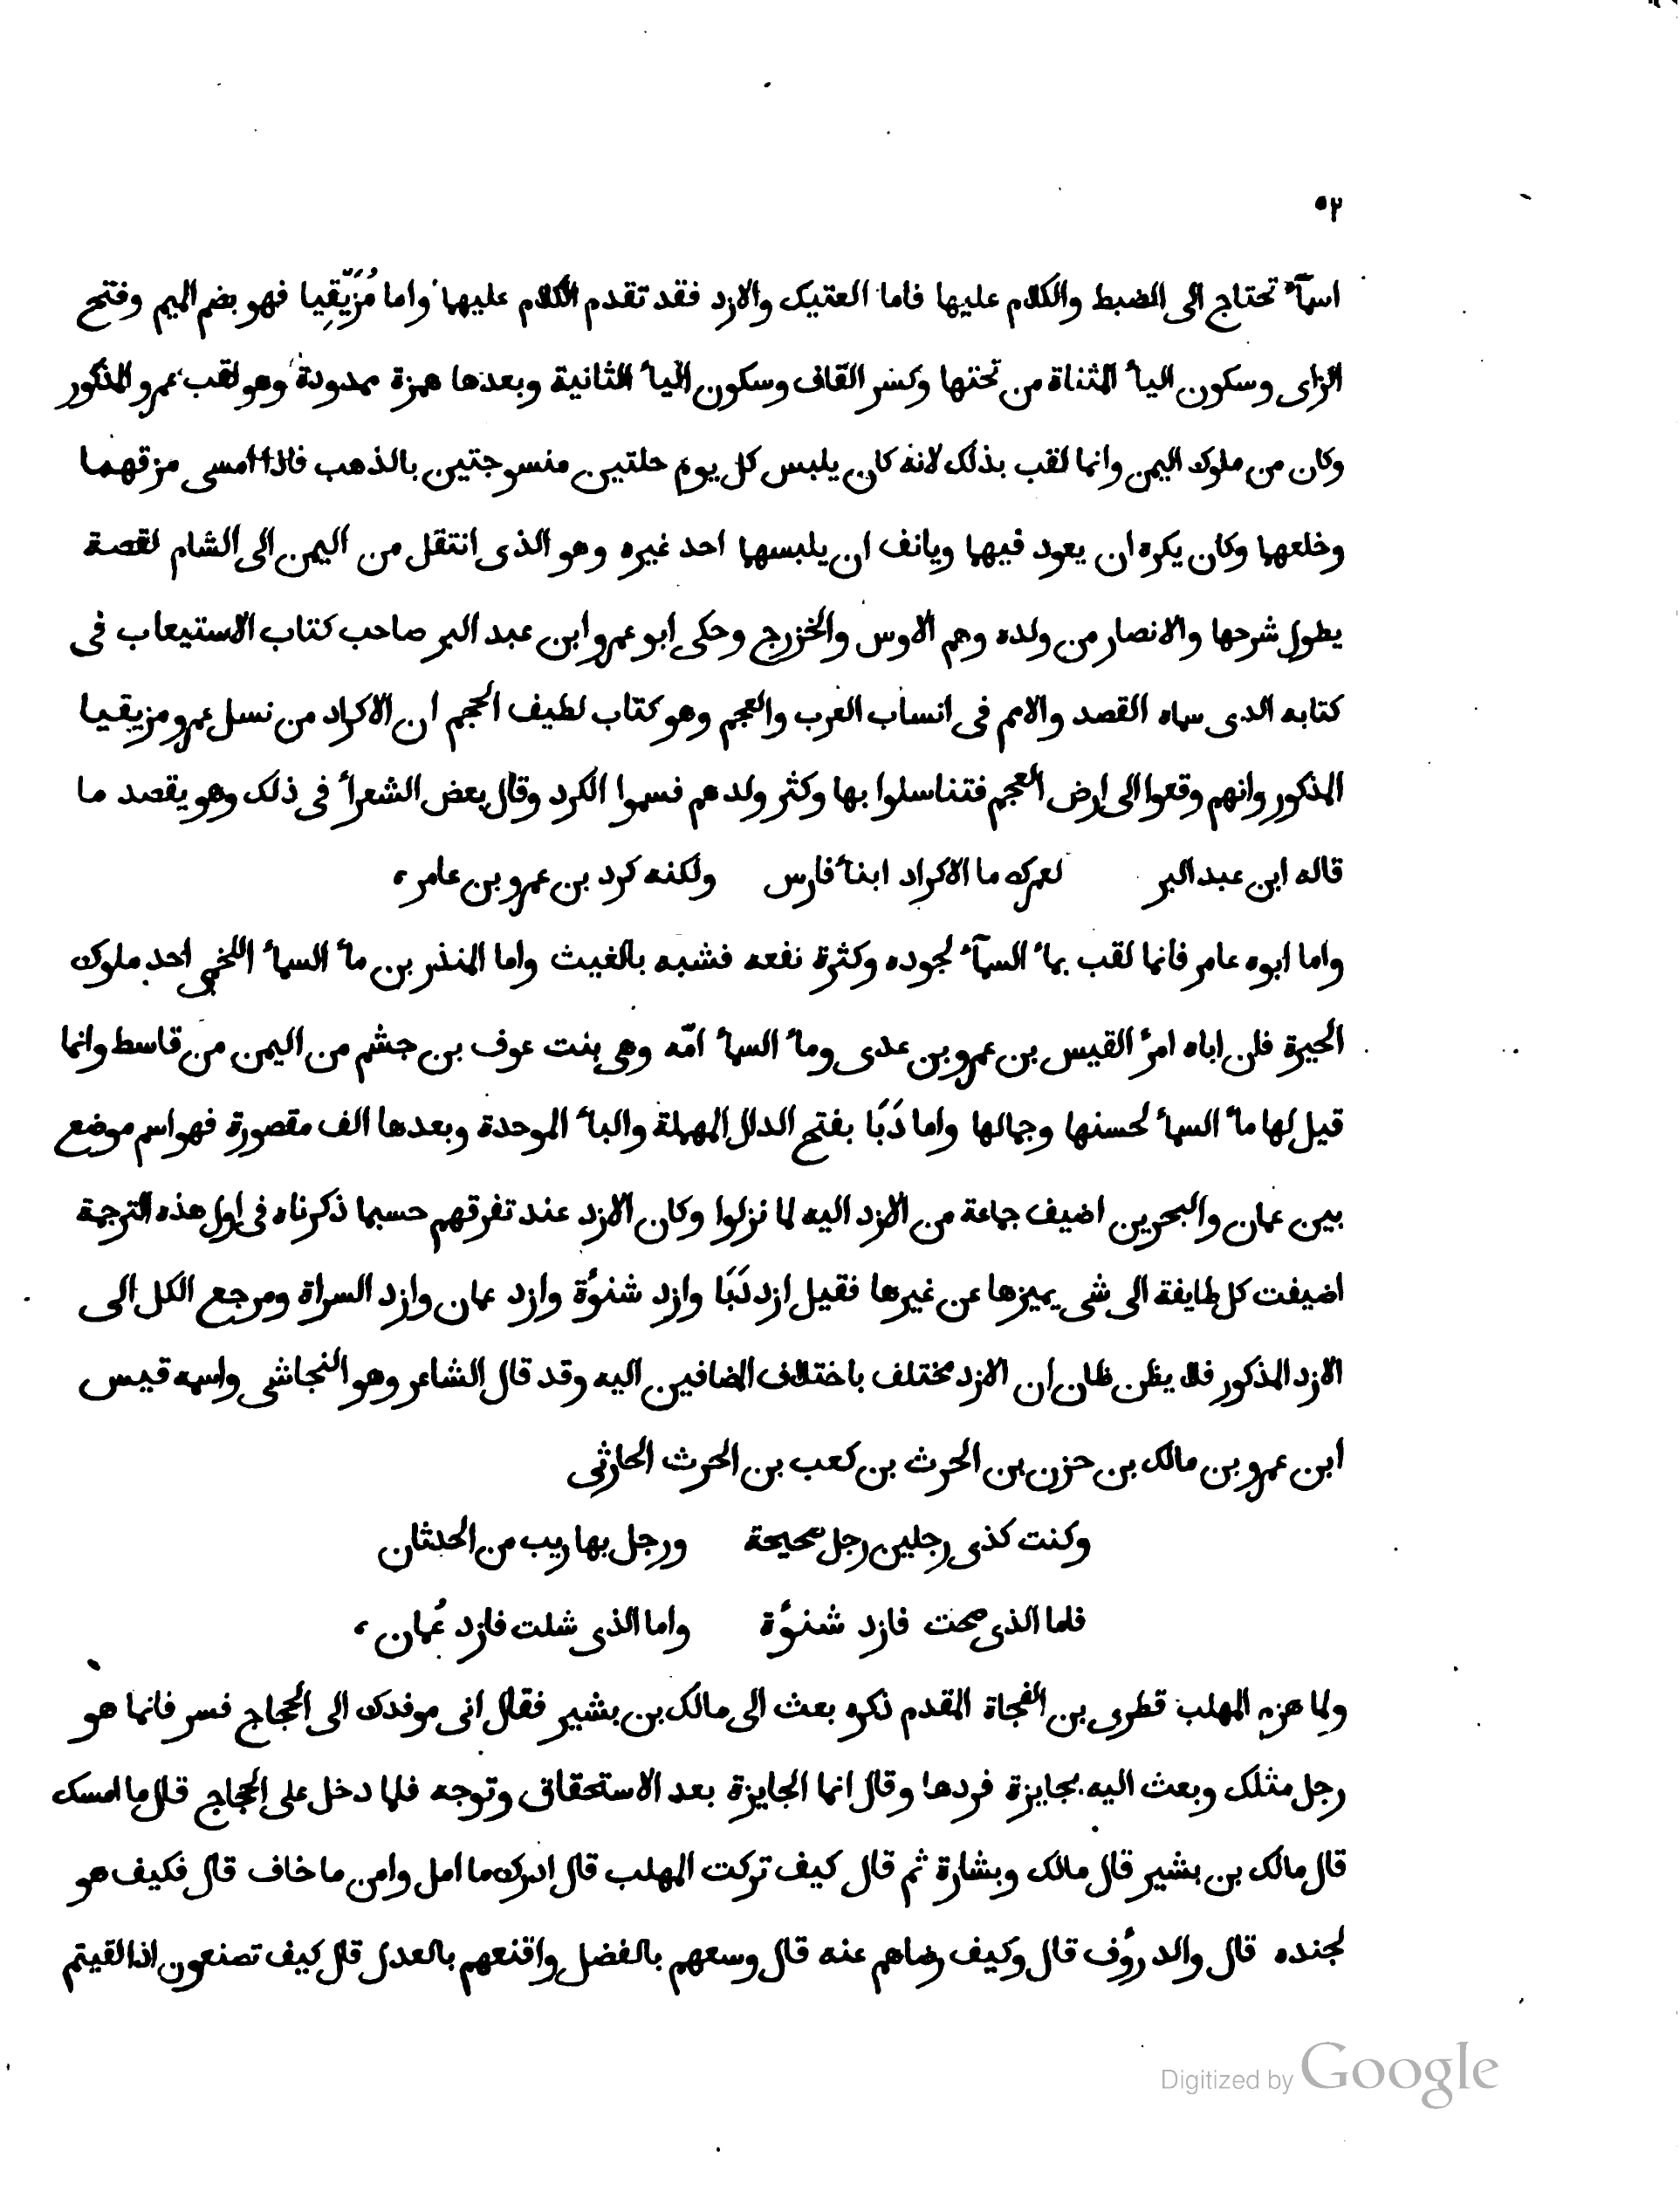 ٥٢
اسمآء تحتاج الى الضبط والكلام عليها فاما العتيك والازد فقد تقدم الكلام عليهما واما مُزَيْقِيا فهو بضم الميم وفتح
الزاى وسكون الياء المثناة من تحتها وكسر القاف وسكون الياء الثانية وبعدها همزة ممدودة وهو لقب عمرو المذكور
وكان من ملوك اليمن وانما لقب بذلك لانه كان يلبس كل يوم حلتين منسوجتين بالذهب فاذا امسى مزقهما
وخلعهما وكان يكره ان يعود فيهما ويانف ان يلبسهما احد غيره وهو الذى انتقل من اليمن الى الشام لقصة
يطول شرحها والانصار من ولده وهم الاوس والخزرج وحكى ابو عمرو ابن عبد البر صاحب كتاب الاستيعاب فى
كتابه الدى سماه القصد والامم فى انساب العرب والعجم وهو كتاب لطيف الحجم ان الاكراد من نسل عمرو مزيقيا
المذكور وانهم وقعوا الى ارض العجم فتناسلوا بها وكثر ولدهم فسموا الكرد وقال بعض الشعراء فى ذلك وهو يقصد ما
قاله ابن عبد البر لعمرك ما الاكراد ابناء فارس ولكنه كرد بن عمرو بن عامر ،
واما ابوه عامر فانما لقب بماء السمآء لجوده وكثرة نفعه فشبه بالغيث واما المنذر بن ماء السماء اللخمى احد ملوك
الحيرة فان اباه امرء القيس بن عمرو بن عدى وماء السماء امّه وهى بنت عوف بن جشم من اليمن من قاسط وانما
قيل لها ماء السماء لحسنها وجمالها واما دَبَا بفتح الدال المهملة والباء الموحدة وبعدها الف مقصورة فهو اسم موضع
بين عمان والبحرين اضيف جماعة من الازد اليه لما نزلوا وكان الازد عند تفرقهم حسبما ذكرناه فى اول هذه الترجمة
اضيفت كل طايفة الى شى يميزها عن غيرها فقيل ازد دَبَا وازد شنوُة وازد عمان وازد السراة ومرجع الكل الى
الازد المذكور فلا يظن ظان ان الازد مختلف باختلاف المضافين اليه وقد قال الشاعر وهو النجاشى واسمه قيس
ابن عمرو بن مالك بن حزن بن الحرث بن كعب بن الحرث الحارثى
وكنت كذى رجلين رجل صحيحة ورجل بها ريب من الحدثان
فلما الذى صحت فازد شنوُة واما الذى شلت فازد عُمان ،
ولما هزم المهلب قطرى بن الفجاة المقدم ذكره بعث الى مالك بن بشير فقال انى موفدك الى الحجاج فسر فانما هو
رجل مثلك وبعث اليه بجايزة فردها وقال انما الجايزة بعد الاستحقاق وتوجه فلما دخل على الحجاج قال ما اسمك
قال مالك بن بشير قال مالك وبشارة ثم قال كيف تركت المهلب قال ادرك ما امل وامن ما خاف قال فكيف هو
لجنده قال والد روُف قال وكيف رضاهم عنه قال وسعهم بالفضل واقنعهم بالعدل قال كيف تصنعون اذا لقيتم
Digitized by Google